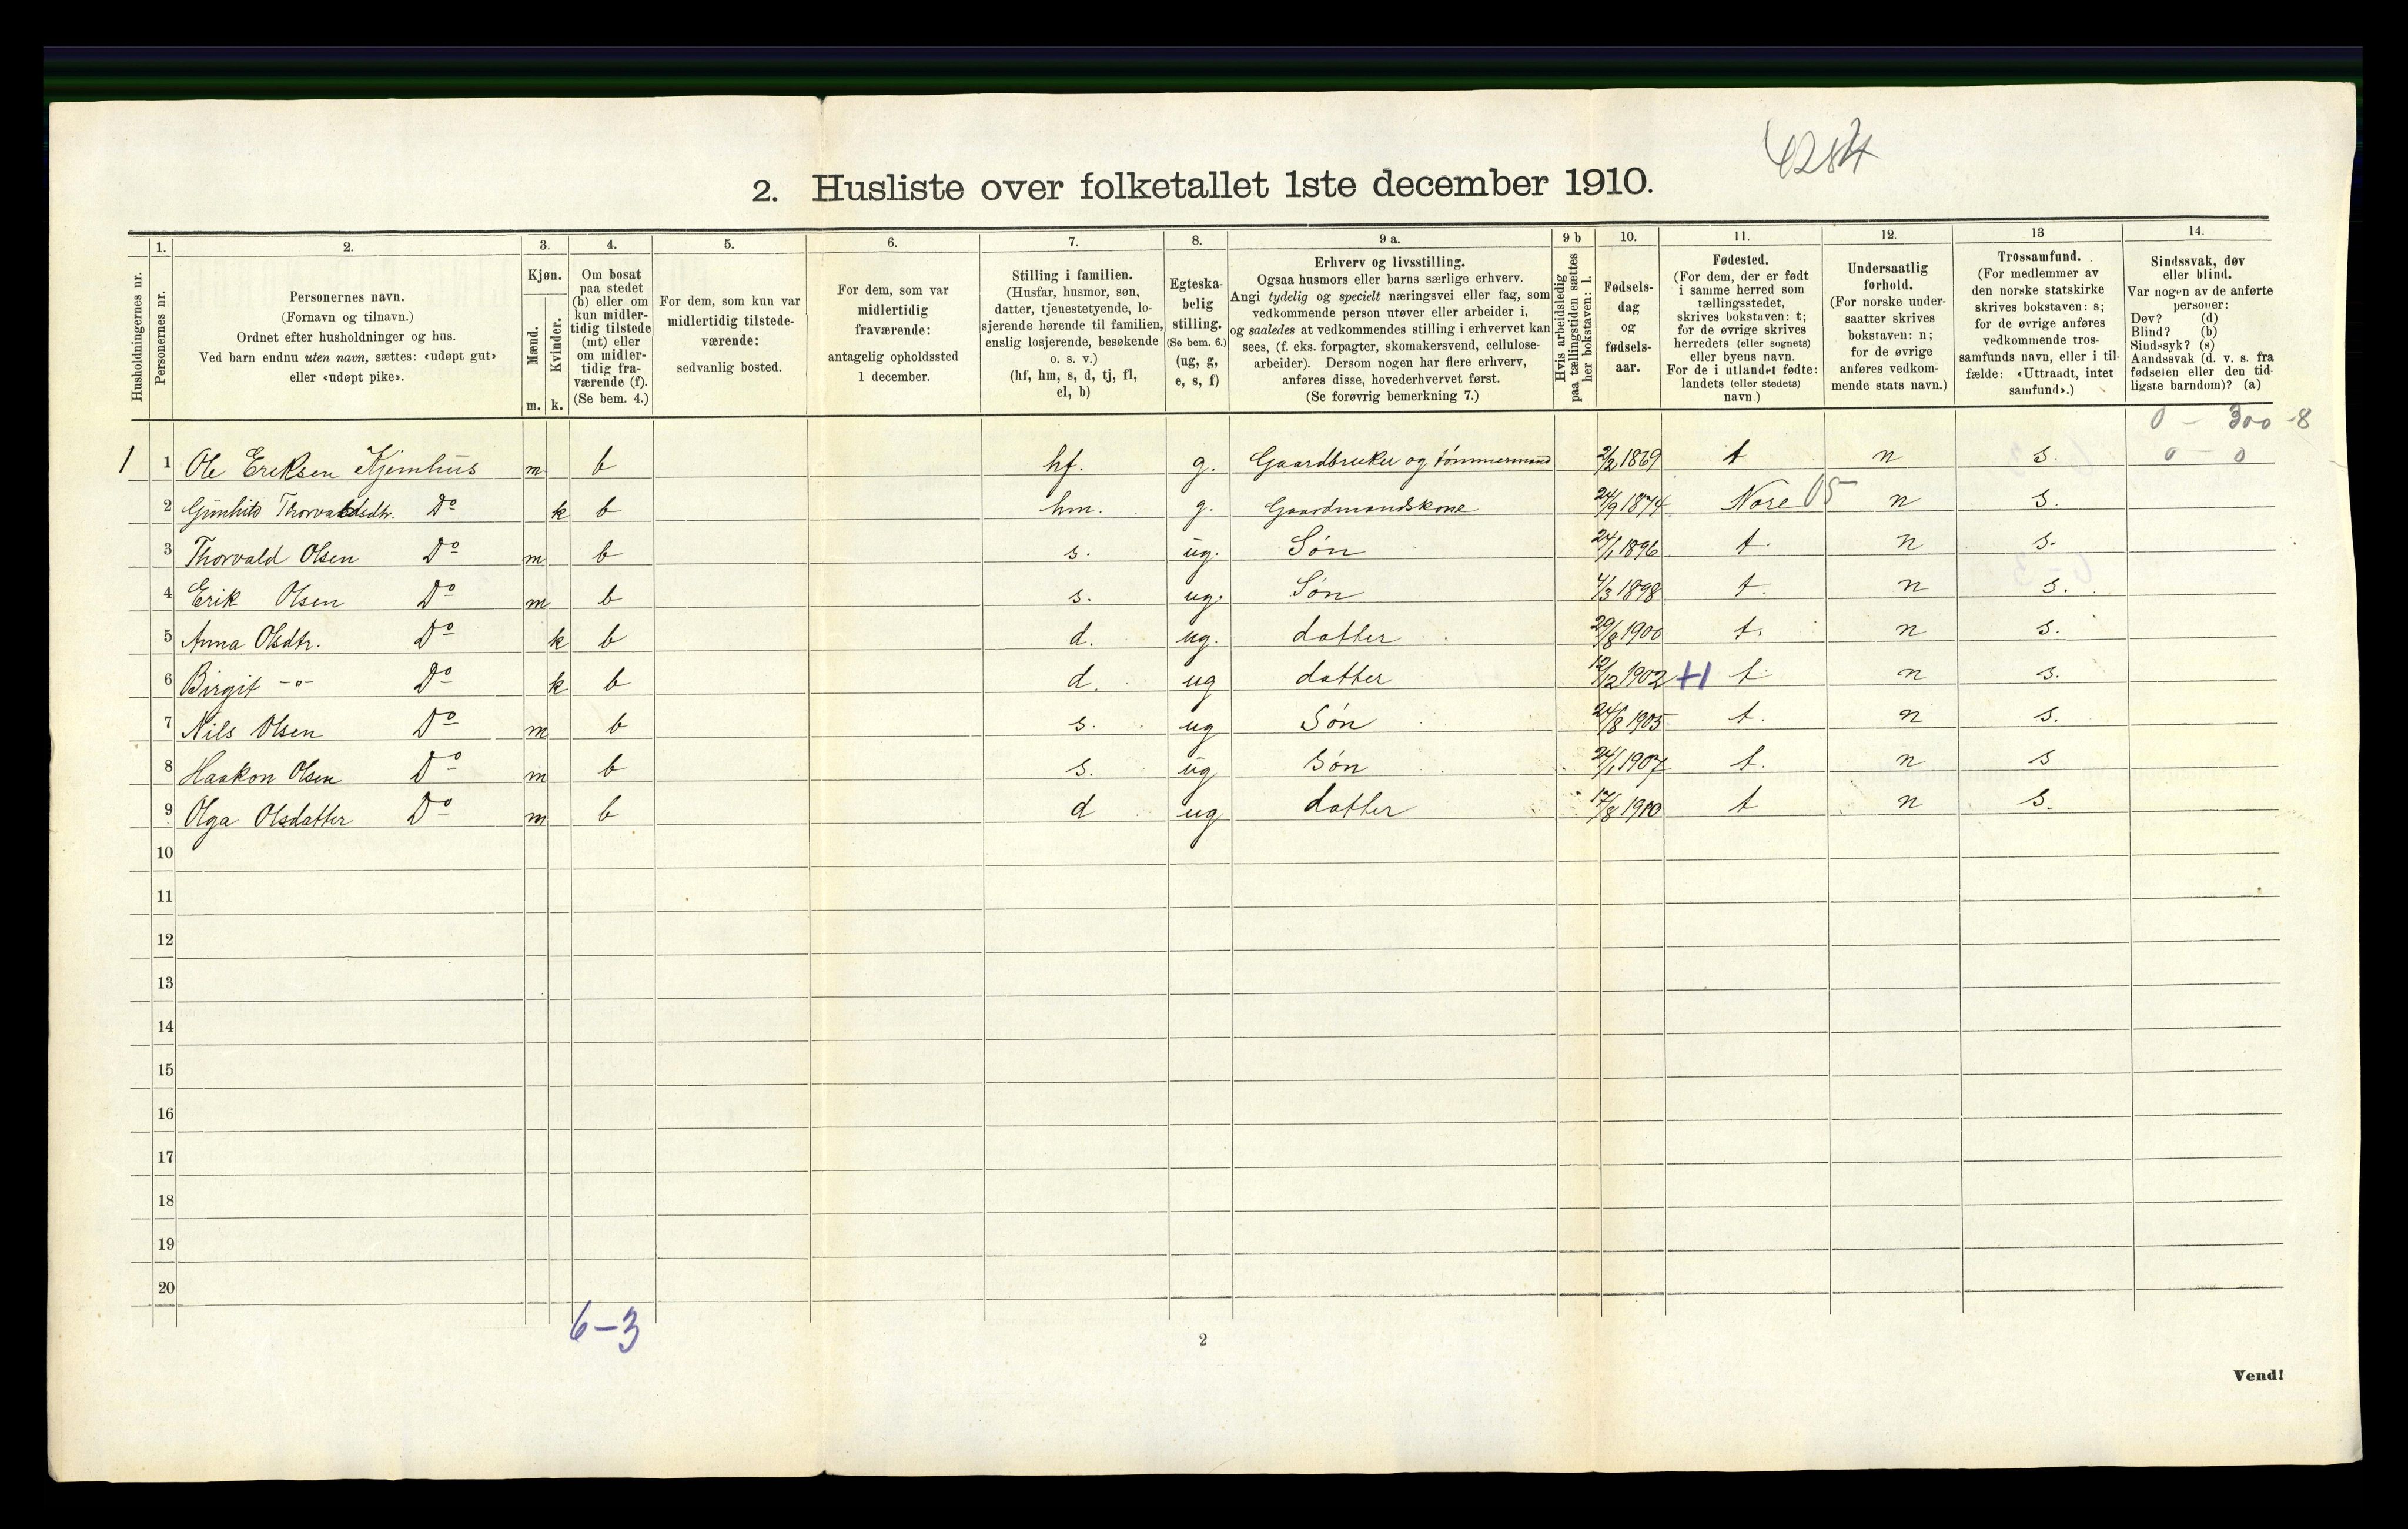 4284
2. Husliste over folketallet 1ste december 1910.
Husholdningernes nr.
1.
Personernes nr.
2.
Personernes navn.
(Fornavn og tilnavn.)
Ordnet efter husholdninger og hus.
Ved barn endnu uten navn, sættes: «udøpt gut»
eller «udøpt pike».
3.
Kjøn.
Mænd.
Kvinder.
m. k.
4.
Om bosat
paa stedet
(b) eller om
kun midler-
tidig tilstede
(mt) eller
om midler-
tidig fra-
værende (f).
(Se bem. 4.)
5.
For dem, som kun var
midlertidig tilstede-
værende:
sedvanlig bosted.
6.
For dem, som var
midlertidig
fraværende:
antagelig opholdssted
1 december.
7.
Stilling i familien.
(Husfar, husmor, søn,
datter, tjenestetyende, lo-
sjerende hørende til familien,
enslig losjerende, besøkende
o. s. v.)
(hf, hm, s, d, tj, fl,
el, b)
8.
Egteska-
belig
stilling.
(Se bem. 6.)
(ug, g,
e, s, f)
9 a.
Erhverv og livsstilling.
Ogsaa husmors eller barns særlige erhverv.
Angi tydelig og specielt næringsvei eller fag, som
vedkommende person utøver eller arbeider i,
og saaledes at vedkommendes stilling i erhvervet kan
sees, (f. eks. forpagter, skomakersvend, cellulose-
arbeider). Dersom nogen har flere erhverv,
anføres disse, hovederhvervet først.
(Se forøvrig bemerkning 7.)
9 b
Hvis arbeidsledig
paa tællingstiden sættes
her bokstaven: l.
10.
Fødsels-
dag
og
fødsels-
aar.
11.
Fødested.
(For dem, der er født
i samme herred som
tællingsstedet,
skrives bokstaven: t;
for de øvrige skrives
herredets (eller sognets)
eller byens navn.
For de i utlandet fødte:
landets (eller stedets)
navn.)
12.
Undersaatlig
forhold.
(For norske under-
saatter skrives
bokstaven: n;
for de øvrige
anføres vedkom-
mende stats navn.)
13
Trossamfund.
(For medlemmer av
den norske statskirke
skrives bokstaven: s;
for de øvrige anføres
vedkommende tros-
samfunds navn, eller i til-
fælde: «Uttraadt, intet
samfund».)
14.
Sindssvak, døv
eller blind.
Var nogen av de anførte
personer:
Døv? (d)
Blind? (b)
Sindssyk? (s)
Aandssvak (d. v. s. fra
fødselen eller den tid-
ligste barndom)? (a)
0 - 300 -8
1 1 Ole Eriksen Kjemhus m b hf. g. Gaardbruker og tømmermand 2/2 1869 t n s. 0 - 0
2 Gunhild Thorvaldsdtr. Do k b hm. g. Gaardmandskone 24/9 1874 Nore 05 n s.
3 Thorvald Olsen Do m b s. ug. Søn 24/1 1896 t. n s.
4 Erik Olsen Do m b s. ug. Søn 4/3 1898 t. n s.
5 Anna Olsdtr. Do k b d. ug. datter 29/8 1900 t. n s.
6 Birgit -"- Do k b d. ug datter 12/12 1902 t n s.
7 Nils Olsen Do m b s. ug Søn 24/8 1905 t. n s.
8 Haakon Olsen Do m b s. ug Søn 24/1 1907 t. n s
9 Olga Olsdatter Do m b d ug datter 17/8 1910 t n s.
10
11
12
13
14
15
16
17
18
19
20
6-3
2
Vend!